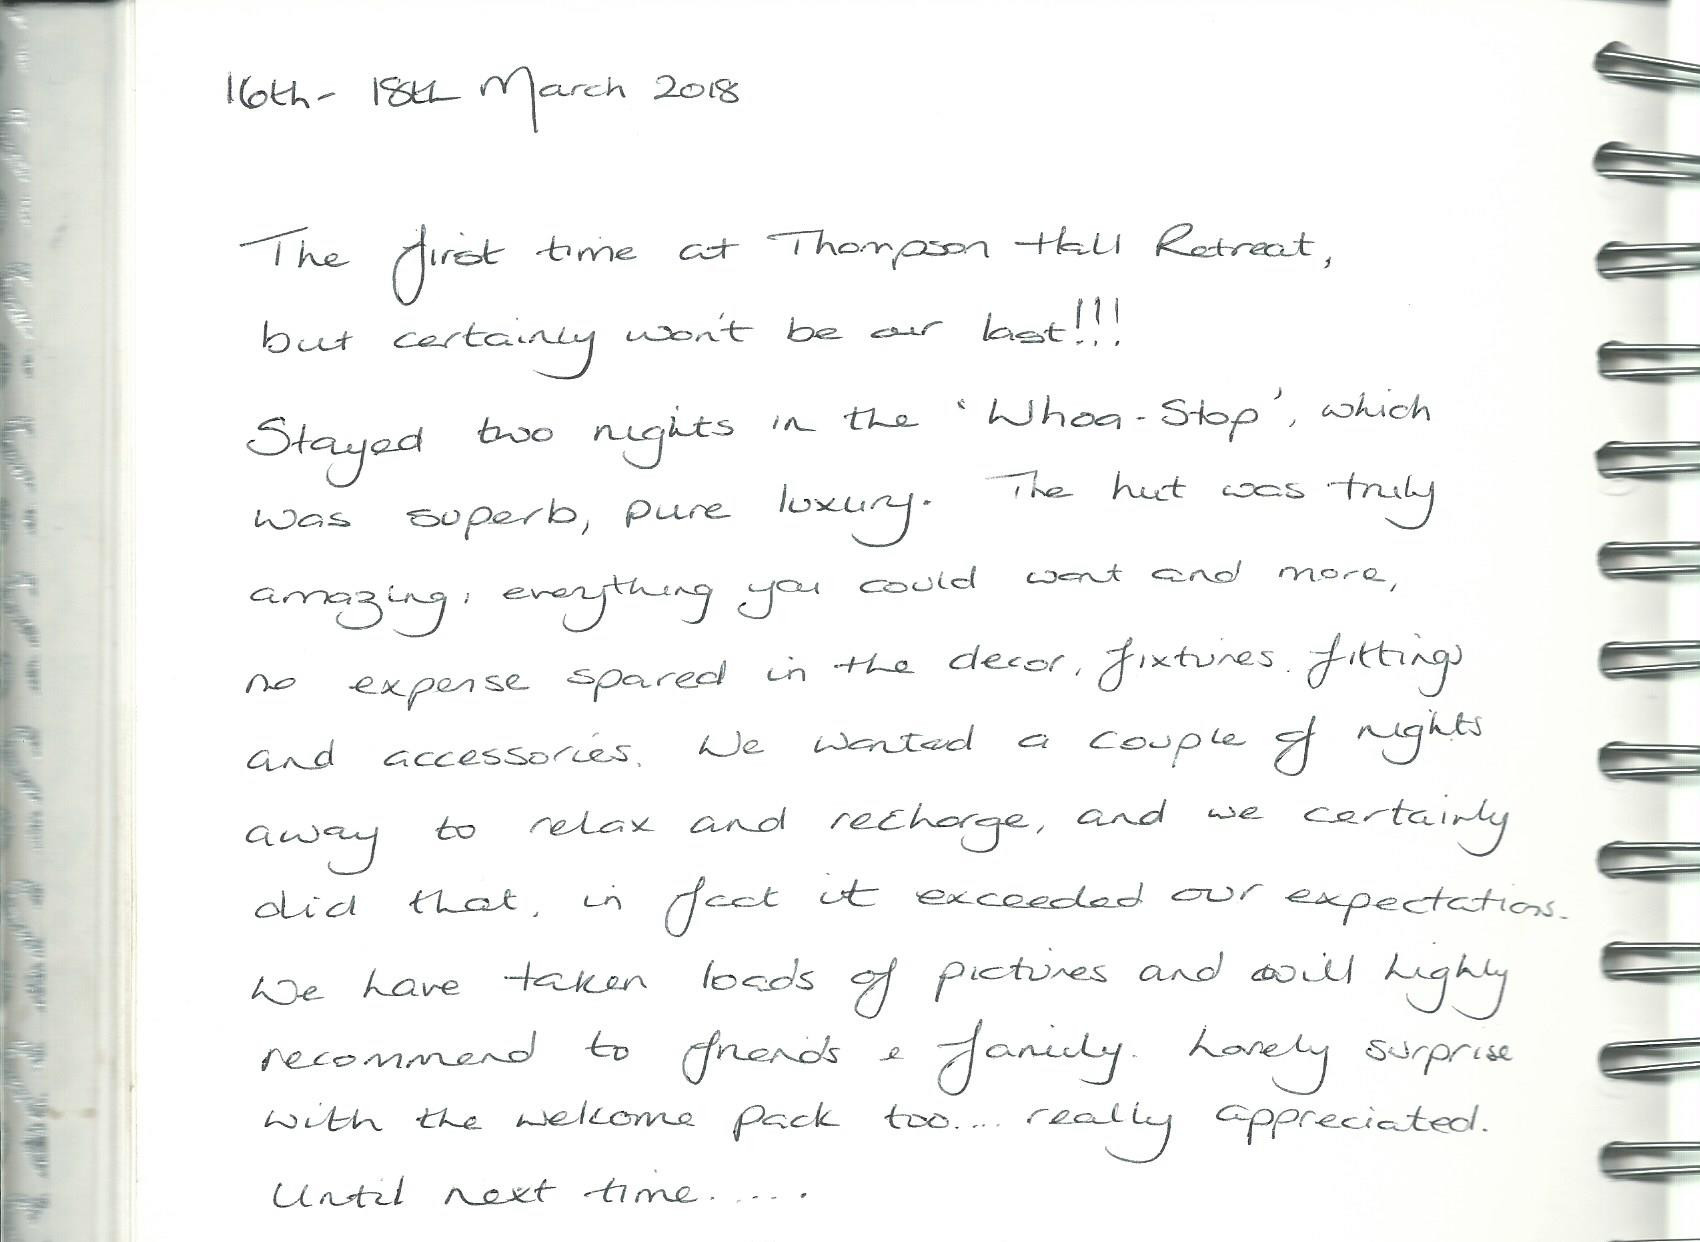 16th - 18th March 2018
The first time at Thompson Hall Retreat,
but certainly won't be our last!!!
Stayed two nights in the 'Whoa-Stop', which
was superb, pure luxury. The hut was truly
amazing, everything you could want and more,
no expense spared in the decor, fixtures, fittings
and accessories. We wanted a couple of nights
away to relax and recharge, and we certainly
did that, in fact it exceeded our expectations.
We have taken loads of pictures and will highly
recommend to friends & family. Lovely surprise
with the welcome pack too.... really appreciated.
Until next time.....